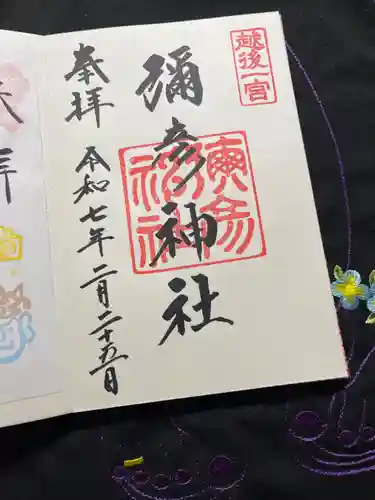 越後一宮
彌彦神社
奉拝
令和七年二月二十五日
拝